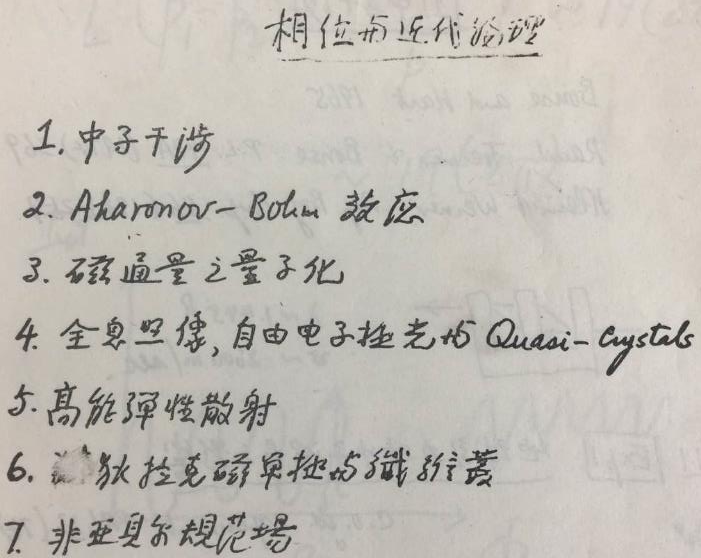 相位与近代物理
1. 中子干涉
2. Aharonov-Bohm 效应
3. 磁通量之量子化
4. 全息照像, 自由电子极光与 Quasi-Crystals
5. 高能弹性散射
6. 狄拉克磁单极与纤维丛
7. 非亚贝尔规范场